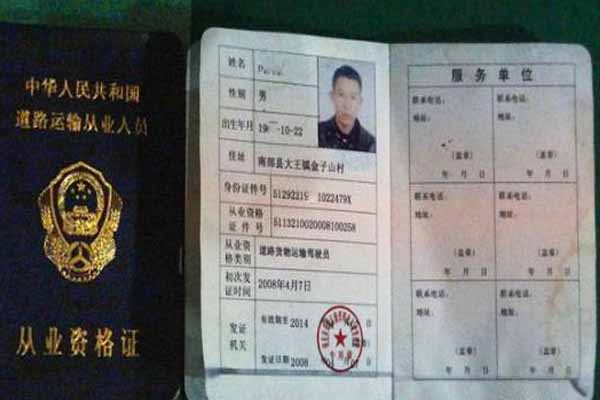 中华人民共和国
道路运输从业人员
从业资格证
姓名
性别 男
出生年月 19 -10-22
住址 南部县大王镇盒子山村
身份证件号 51292219 1022479X
从业资格
证 件 号 5113210020008100258
从业资
格类别 道路货物运输驾驶员
初次发
证时间 2008年4月7日
发证
机关
有效期至 2014 日
发证日期 2008
服 务 单 位
联系电话: 联系电话:
地址: 地址:
(盖章) (盖章)
年 月 日 年 月 日
联系电话: 联系电话:
地址: 地址:
(盖章) (盖章)
年 月 日 年 月 日
联系电话: 联系电话:
地址: 地址:
(盖章) (盖章)
年 月 日 年 月 日